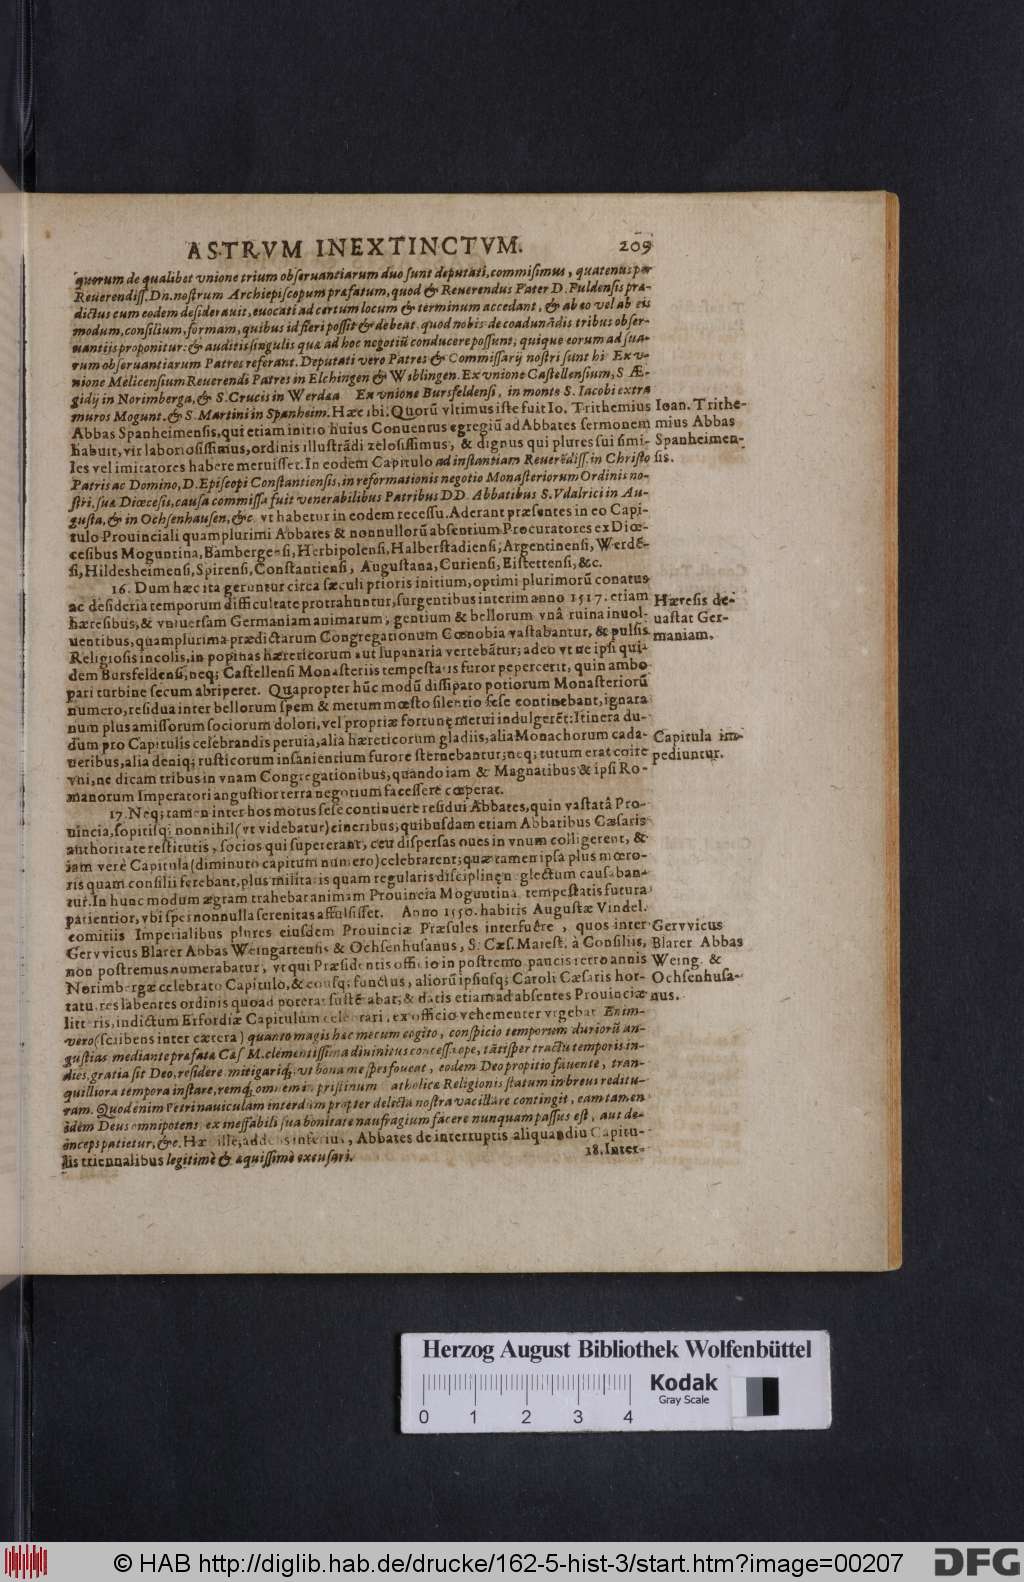 ASTRVM INEXTINCTVM. 209
quorum de qualibet vnione trium obſeruantiarum duo ſunt deputati, commiſimus, quatenus per
Reuerendiſſ. Dn. noſtrum Archiepiſcopum præfatum, quod & Reuerendus Pater D. Fuldenſis præ-
dictus cum eodem deſiderauit, euocati ad certum locum & terminum accedant, & ab eo vel ab eis
modum, conſilium, formam, quibus id fieri poſſit & debeat. quod nobis de coadunãdis tribus obſer-
uantijs proponitur: & auditis ſingulis quæ ad hoc negotiũ conducere poſſunt, quique eorum ad ſua-
rum obſeruantiarum Patres referant. Deputati vero Patres & Commiſſarij noſtri ſunt hi Ex v-
nione Mellicenſium Reuerendi Patres in Elchingen & Wiblingen. Ex vnione Caſtellenſium, S Æ-
gidij in Norimberga, & S. Crucis in Werdea Ex vnione Bursfeldenſi, in monte S. Iacobi extra
muros Mogunt. & S. Martini in Spanheim. Hæc ibi. Quorũ vltimus iſte fuit Io. Trithemius
Abbas Spanheimenſis, qui etiam initio huius Conuentus egregiũ ad Abbates ſermonem
habuit, vir laborioſiſſimus, ordinis illuſtrãdi zeloſiſſimus, & dignus qui plures ſui ſimi-
les vel imitatores habere meruiſſet. In eodem Capitulo ad inſtantiam Reuerẽdiſſ. in Chriſto
Patris ac Domino, D. Epiſcopi Conſtantienſis, in reformationis negotio Monaſteriorum Ordinis no-
ſtri, ſuæ Diœceſis, cauſa commiſſa fuit venerabilibus Patribus DD. Abbatibus S. Vdalrici in Au-
guſta, & in Ochſenhauſen, &c. vt habetur in eodem receſſu. Aderant præſentes in eo Capi-
tulo Prouinciali quamplurimi Abbates & nonnullorũ abſentium Procuratores ex Diœ-
ceſibus Moguntina, Bambergenſi, Herbipolenſi, Halberſtadienſi, Argentinenſi, Werdẽ-
ſi, Hildesheimenſi, Spirenſi, Conſtantienſi, Auguſtana, Curienſi, Eiſtettenſi, &c.
16. Dum hæc ita geruntur circa ſæculi prioris initium, optimi plurimorũ conatus
ac deſideria temporum difficultate protrahuntur, ſurgentibus interim anno 1517. etiam
hæreſibus, & vniuerſam Germaniam animarum, gentium & bellorum vnâ ruina inuol-
uentibus, quamplurima prædictarum Congregationum Cœnobia vaſtabantur, & pulſis
Religioſis incolis, in popinas hæreticorum aut lupanaria vertebãtur; adeo vt ne ipſi qui-
dem Bursfeldenſi, neq; Caſtellenſi Monaſteriis tempeſtatis furor pepercerit, quin ambo
pari turbine ſecum abriperet. Quapropter hũc modũ diſſipato potiorum Monaſteriorũ
numero, reſidua inter bellorum ſpem & metum mœſto ſilentio ſeſe continebant, ignara
num plus amiſſorum ſociorum dolori, vel propriæ fortunę metui indulgerẽt: Itinera du-
dum pro Capitulis celebrandis peruia, alia hæreticorum gladiis, alia Monachorum cada-
ueribus, alia deniq; ruſticorum inſanientium furore ſternebantur; neq; tutum erat coire
vni, ne dicam tribus in vnam Congregationibus, quando iam & Magnatibus & ipſi Ro-
manorum Imperatori anguſtior terra negotium faceſſere cœperat.
17. Neq; tamen inter hos motus ſeſe continuere reſidui Abbates, quin vaſtatâ Pro-
uincia, ſopitiſq; nonnihil (vt videbatur) cineribus; quibuſdam etiam Abbatibus Cæſaris
authoritate reſtitutis, ſocios qui ſupererant, ceu diſperſas oues in vnum colligerent, &
iam verè Capitula (diminuto capitum numero) celebrarent; quæ tamen ipſa plus mœro-
ris quam conſilii ferebant, plus militaris quam regularis diſciplinę neglectum cauſaban-
tur. In hunc modum ægram trahebat animam Prouincia Moguntina, tempeſtatis futura
patientior, vbi ſpei nonnulla ſerenitas affulſiſſet. Anno 1550. habitis Auguſtæ Vindel.
comitiis Imperialibus plures eiuſdem Prouinciæ Præſules interfuêre, quos inter
Gervvicus Blarer Abbas Weingartenſis & Ochſenhuſanus, S. Cæſ. Maieſt. à Conſiliis,
non poſtremus numerabatur, vt qui Præſidentis officio in poſtremo paucis retro annis
Norimbergæ celebrato Capitulo, & eouſq; functus, aliorũ ipſiuſq; Caroli Cæſaris hor-
tatu, res labentes ordinis quoad poterat ſuſtẽtabat; & datis etiam ad abſentes Prouinciæ
litteris, indictum Erfordiæ Capitulum celebrari, ex officio vehementer vrgebat Enim-
vero (ſcribens inter cætera) quanto magis hæc mecum cogito, conſpicio temporum duriorũ an-
guſtias mediante præfata Cæſ M. clementiſſima diuinitus conceſſa ope, tãtiſper tractu temporis in-
dies, gratia ſit Deo, reſidere mitigariq́; vt bona me ſpes foueat, eodem Deo propitio fauente, tran-
quilliora tempora inſtare, remq́; omnem in priſtinum Catholicæ Religionis ſtatum in breui reditu-
ram. Quod enim Petri nauiculam interdum propter delicta noſtra vacillare contingit, eam tamen
idem Deus omnipotens ex ineffabili ſua bonitate naufragium facere nunquam paſſus eſt, aut de-
inceps patietur, &c. Hæc ille, addens inferius, Abbates de interruptis aliquandiu Capitu-
lis triennalibus legitimè & æquiſſimè excuſari.
18. Inter-
Ioan. Trithe-
mius Abbas
Spanheimen-
ſis.
Hæreſis de-
uaſtat Ger-
maniam.
Capitula im-
pediuntur.
Gervvicus
Blarer Abbas
Weing. &
Ochſenhuſa-
nus.
Herzog August Bibliothek Wolfenbüttel
Kodak
Gray Scale
0 1 2 3 4
© HAB http://diglib.hab.de/drucke/162-5-hist-3/start.htm?image=00207
DFG